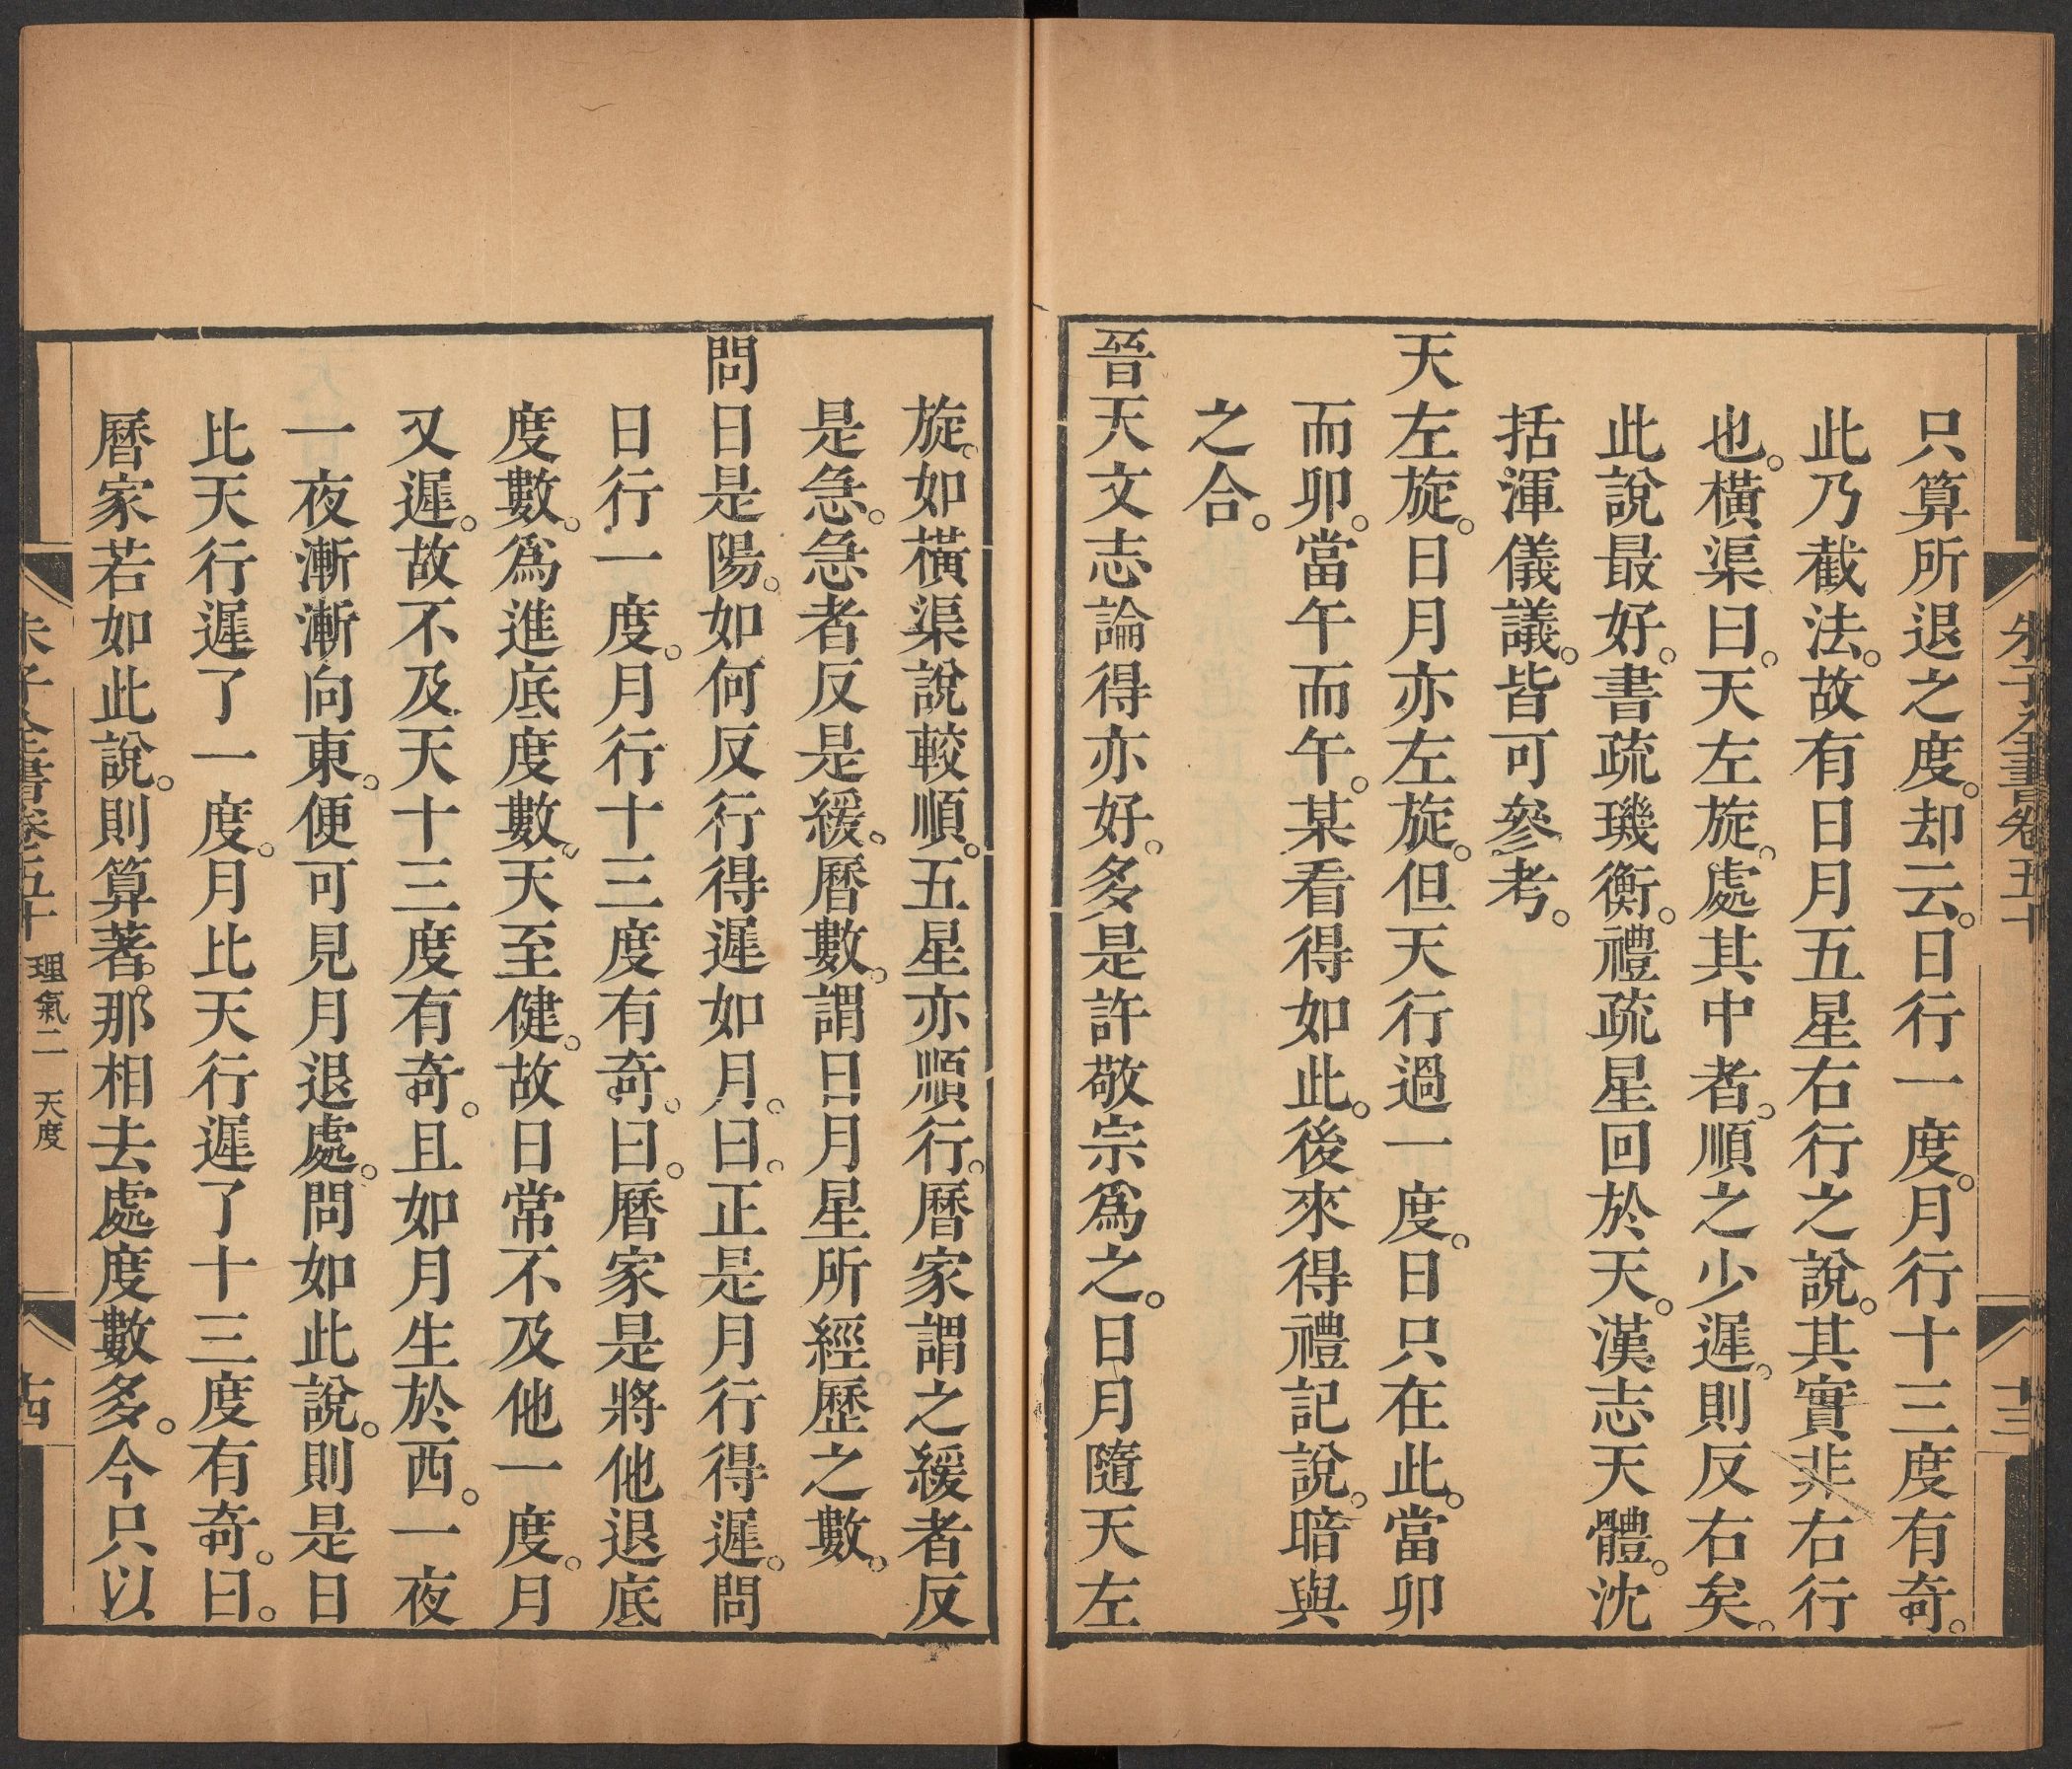 朱子全書卷五十
十三
只算所退之度。却云。日行一度。月行十三度有奇。
此乃截法。故有日月五星右行之說。其實非右行
也。橫渠曰。天左旋。處其中者。順之少遲。則反右矣。
此說最好。書疏璣衡。禮疏星回於天。漢志天體。沈
括渾儀議。皆可參考。
天左旋。日月亦左旋。但天行過一度。日只在此。當卯
而卯。當午而午。某看得如此。後來得禮記說。暗與
之合。
晉天文志論得亦好。多是許敬宗爲之。日月隨天左
旋。如橫渠說較順。五星亦順行。曆家謂之緩者反
是急。急者反是緩。曆數。謂日月星所經歷之數。
問日是陽。如何反行得遲如月。曰。正是月行得遲。問
日行一度。月行十三度有奇。曰。曆家是將他退底
度數。爲進底度數。天至健。故日常不及他一度。月
又遲。故不及天十三度有奇。且如月生於西。一夜
一夜漸漸向東。便可見月退處。問如此說。則是日
比天行遲了一度。月比天行遲了十三度有奇。曰。
曆家若如此說。則算著。那相去處度數多。今只以
朱子全書卷五十 理氣二 天度
十四